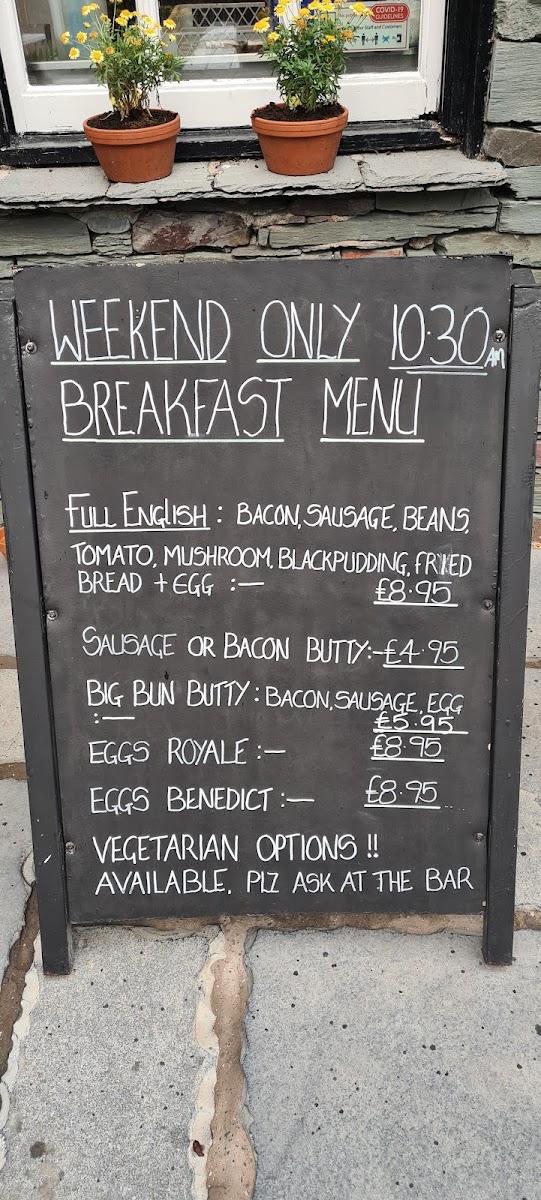 COVID-19
GUIDELINES
WEEKEND ONLY 10.30AM
BREAKFAST MENU
FULL ENGLISH : BACON, SAUSAGE, BEANS,
TOMATO, MUSHROOM, BLACKPUDDING, FRIED
BREAD + EGG :— £8.95
SAUSAGE OR BACON BUTTY:-£4.95
BIG BUN BUTTY : BACON, SAUSAGE, EGG
:— £5.95
EGGS ROYALE :— £8.95
EGGS BENEDICT :— £8.95
VEGETARIAN OPTIONS !!
AVAILABLE, PLZ ASK AT THE BAR